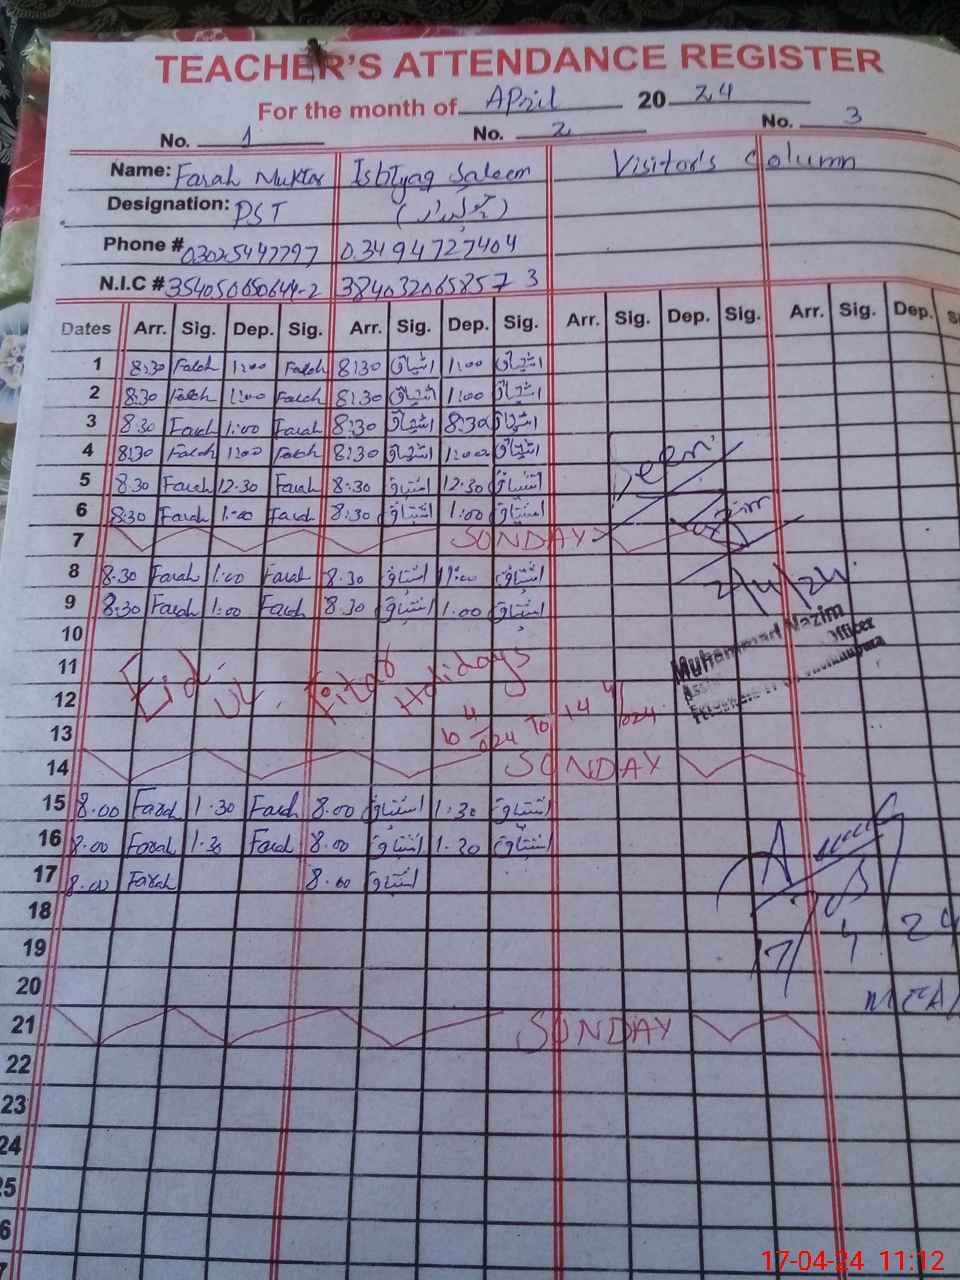 TEACHER'S ATTENDANCE REGISTER
For the month of April 2024
No. 1 No. 2 No. 3
Name: Farah Muktar Ishtyaq Saleem Visitor's Column
Designation: PST (چوکیدار)
Phone # 03025447797 03494727404
N.I.C # 354050650644-2 3840320658573
Dates Arr. Sig. Dep. Sig. Arr. Sig. Dep. Sig. Arr. Sig. Dep. Sig. Arr. Sig. Dep.
1 8:30 Farah 1:00 Farah 8:30 اشتیاق 1:00 اشتیاق
2 8:30 Farah 1:00 Farah 8:30 اشتیاق 1:00 اشتیاق
3 8:30 Farah 1:00 Farah 8:30 اشتیاق 8:30 اشتیاق
4 8:30 Farah 1:00 Farah 8:30 اشتیاق 1:00 اشتیاق
5 8:30 Farah 12:30 Farah 8:30 اشتیاق 12:30 اشتیاق
6 8:30 Farah 1:00 Farah 8:30 اشتیاق 1:00 اشتیاق
7 SUNDAY
8 8.30 Farah 1:00 Farah 8.30 اشتیاق 1:00 اشتیاق
9 8:30 Farah 1:00 Farah 8.30 اشتیاق 1.00 اشتیاق
Seen
2/4/24
Muhammad Nazim
Officer
10
11 Eid Ul Fitar Holidays
12
13 To
14 SUNDAY
15 8.00 Farah 1.30 Farah 8.00 اشتیاق 1.30 اشتیاق
16 8.00 Farah 1.30 Farah 8.00 اشتیاق 1.30 اشتیاق
17 8.00 Farah 8.00 اشتیاق
18
17/4/24
19
20
MEA
21 SUNDAY
22
23
24
25
17-04-24 11:12